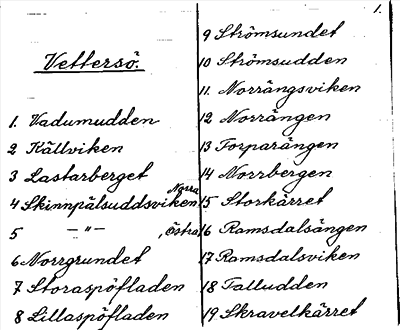 1.
Vettersö.
1. Vadumudden
2 Källviken
3 Lastarberget
4 Skinnpälsuddsviken Norra
5 —"— , Östra
6 Norrgrundet
7 Storaspöfladen
8 Lillaspöfladen
9 Strömsundet
10 Strömsudden
11. Norrängsviken
12 Norrängen
13 Torparängen
14 Norrbergen
15 Storkärret
16 Ramsdalsängen
17 Ramsdalsviken
18 Talludden
19 Skravelkärret